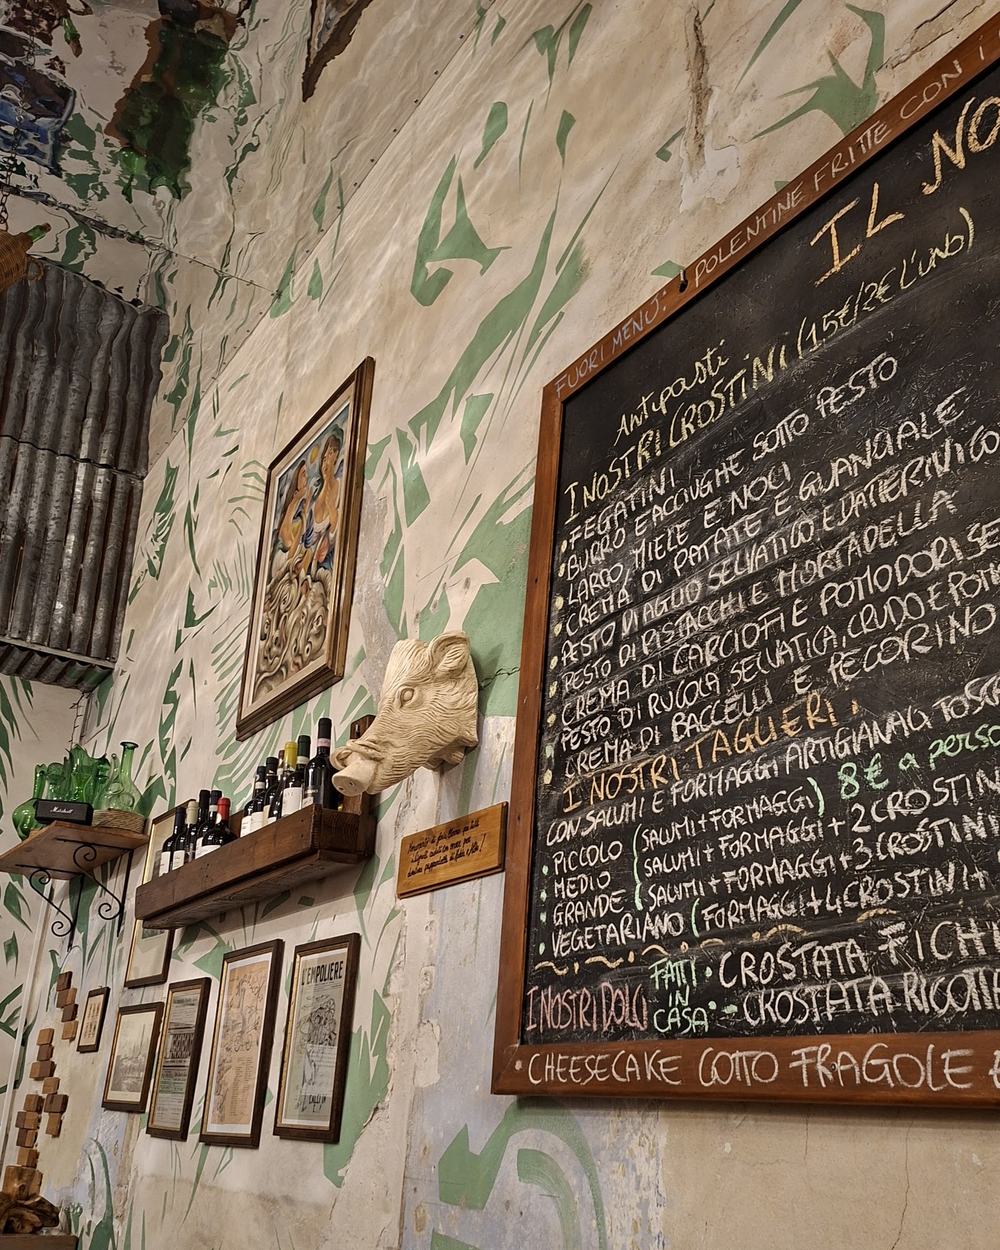 FUORI MENU: POLENTINE FRITTE CON I
IL NO
Antipasti
I NOSTRI CROSTINI (1,5€/2€ L'uno)
• FEGATINI
• BURRO E ACCIUGHE SOTTO PESTO
• LARDO, MIELE E NOCI
• CREMA DI PATATE E GUANCIALE
• PESTO DI AGLIO SELVATICO E DATTERINI CO
• PESTO DI PISTACCHI E MORTADELLA
• CREMA DI CARCIOFI E POMODORI SE
• PESTO DI RUCOLA SELVATICA, CRUDO E POM
• CREMA DI BACCELLI E PECORINO
I NOSTRI TAGLIERI:
CON SALUMI E FORMAGGI ARTIGIANALI TOSC
• PICCOLO (SALUMI+FORMAGGI) 8€ a perso
• MEDIO (SALUMI+FORMAGGI+2 CROSTIN
• GRANDE (SALUMI+FORMAGGI+3 CROSTINI
• VEGETARIANO (FORMAGGI+4 CROSTINI+
I NOSTRI DOLCI FATTI IN CASA
• CROSTATA FICHI
- CROSTATA RICOTTA
• CHEESECAKE COTTO FRAGOLE E
Marshall
L'EMPOLIERE